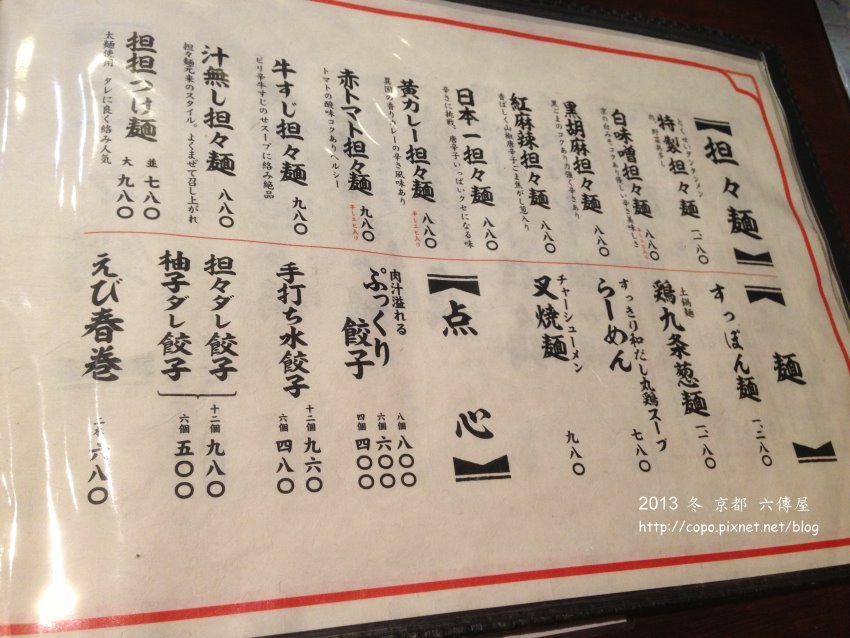 担々麺
とくせいタンタンメン
特製担々麺 一、一八〇
白味噌担々麺 八八〇
黒胡麻担々麺 八八〇
黒ごまのコクあり力強く辛さあり
紅麻辣担々麺 八八〇
香ばしく山椒唐辛子ごま焦がし葱入り
日本一担々麺 八八〇
辛さに挑戦、唐辛子いっぱいクセになる味
黄カレー担々麺 八八〇
異国の香りカレーの辛さ風味あり
辛しエビ入り
赤トマト担々麺 九八〇
トマトの酸味コクありヘルシー
辛しエビ入り
牛すじ担々麺 九八〇
ピリ辛牛すじのせスープに絡み絶品
汁無し担々麺 八八〇
担々麺元来のスタイル。よくまぜて召し上がれ
担担つけ麺 並 七八〇
大 九八〇
太麺使用 タレに良く絡み人気
麺
すっぽん麺 一、二八〇
土鍋麺
鶏九条葱麺 一、一八〇
すっきり和だし丸鶏スープ
らーめん 七八〇
チャーシューメン
叉焼麺 九八〇
点心
肉汁溢れる
ぷっくり餃子
八個 八〇〇
六個 六〇〇
四個 四〇〇
手打ち水餃子
十二個 九六〇
六個 四八〇
担々ダレ餃子
柚子ダレ餃子
十二個 九八〇
六個 五〇〇
えび春巻 二本 六八〇
2013 冬 京都 六傳屋
http://copo.pixnet.net/blog